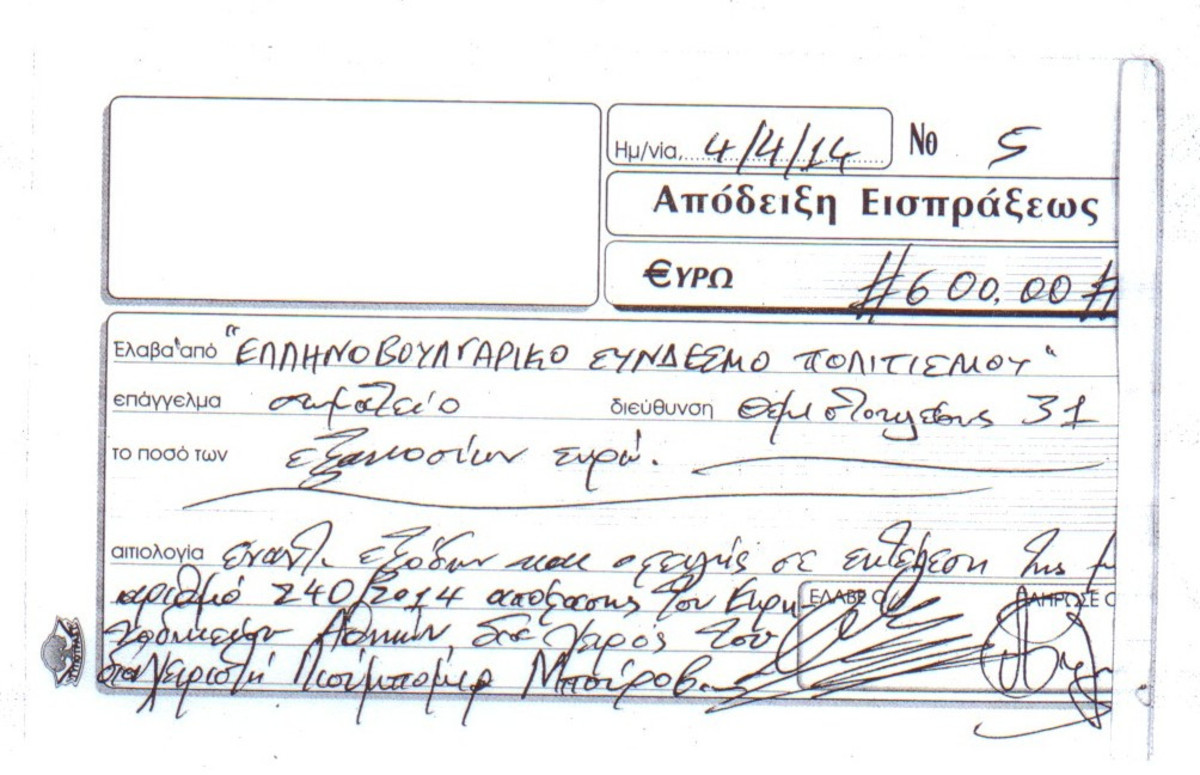 Ημ/νία, 4/4/14 Νο 5
Απόδειξη Εισπράξεως
€ΥΡΩ #600,00#
Έλαβα από "ΕΛΛΗΝΟΒΟΥΛΓΑΡΙΚΟ ΣΥΝΔΕΣΜΟ ΠΟΛΙΤΙΣΜΟΥ"
επάγγελμα σωματείο διεύθυνση Θεμιστοκλέους 31
το ποσό των εξακοσίων ευρώ.
αιτιολογία έναντι εξόδων και οφειλής σε εκτέλεση της
αριθμό 240/2014 απόφασης του Ειρη-
ΕΛΑΒΕ Ο
ΠΛΗΡΩΣΕ Ο
νοδικείου Αθηνών δια χειρός του
διαχειριστή Μπούροβ